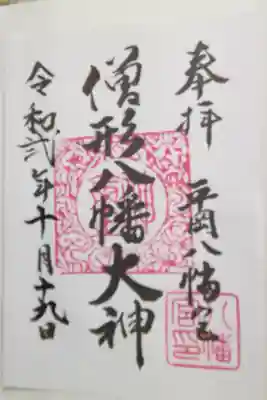 奉拝
平岡八幡宮
僧形八幡大神
令和弐年十月十九日